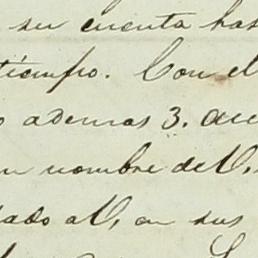 su cuenta has
tiempo. Con el
ademas 3. acc
nombre de V.
dado a V, en sus